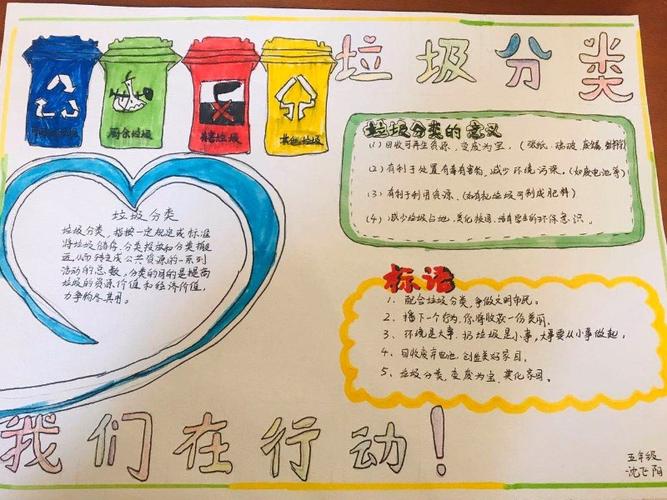 垃圾分类
厨余垃圾
有害垃圾
其他垃圾
垃圾分类的意义
(1) 回收可再生资源，变废为宝。(废纸、玻璃
(2) 有利于处置有毒有害物，减少环境污染。(如废电池等)
(3) 有利于利用资源。(如有机垃圾可制成肥料)
(4) 减少垃圾占地，美化校园，培育学生的环保意识。
垃圾分类
垃圾分类，指按一定规定或标准
将垃圾储存、分类投放和分类搬
运，从而转变成公共资源的一系列
活动的总数，分类的目的是提高
垃圾的资源价值和经济价值，
力争物尽其用。
标语
1、配合垃圾分类，争做文明市民。
2、播下一个行为，你将收获一份美丽。
3、环境是大事，扔垃圾是小事，大事要从小事做起。
4、回收废弃电池，创造美好家园。
5、垃圾分类，变废为宝，美化家园。
我们在行动！
五年级
沈飞阳